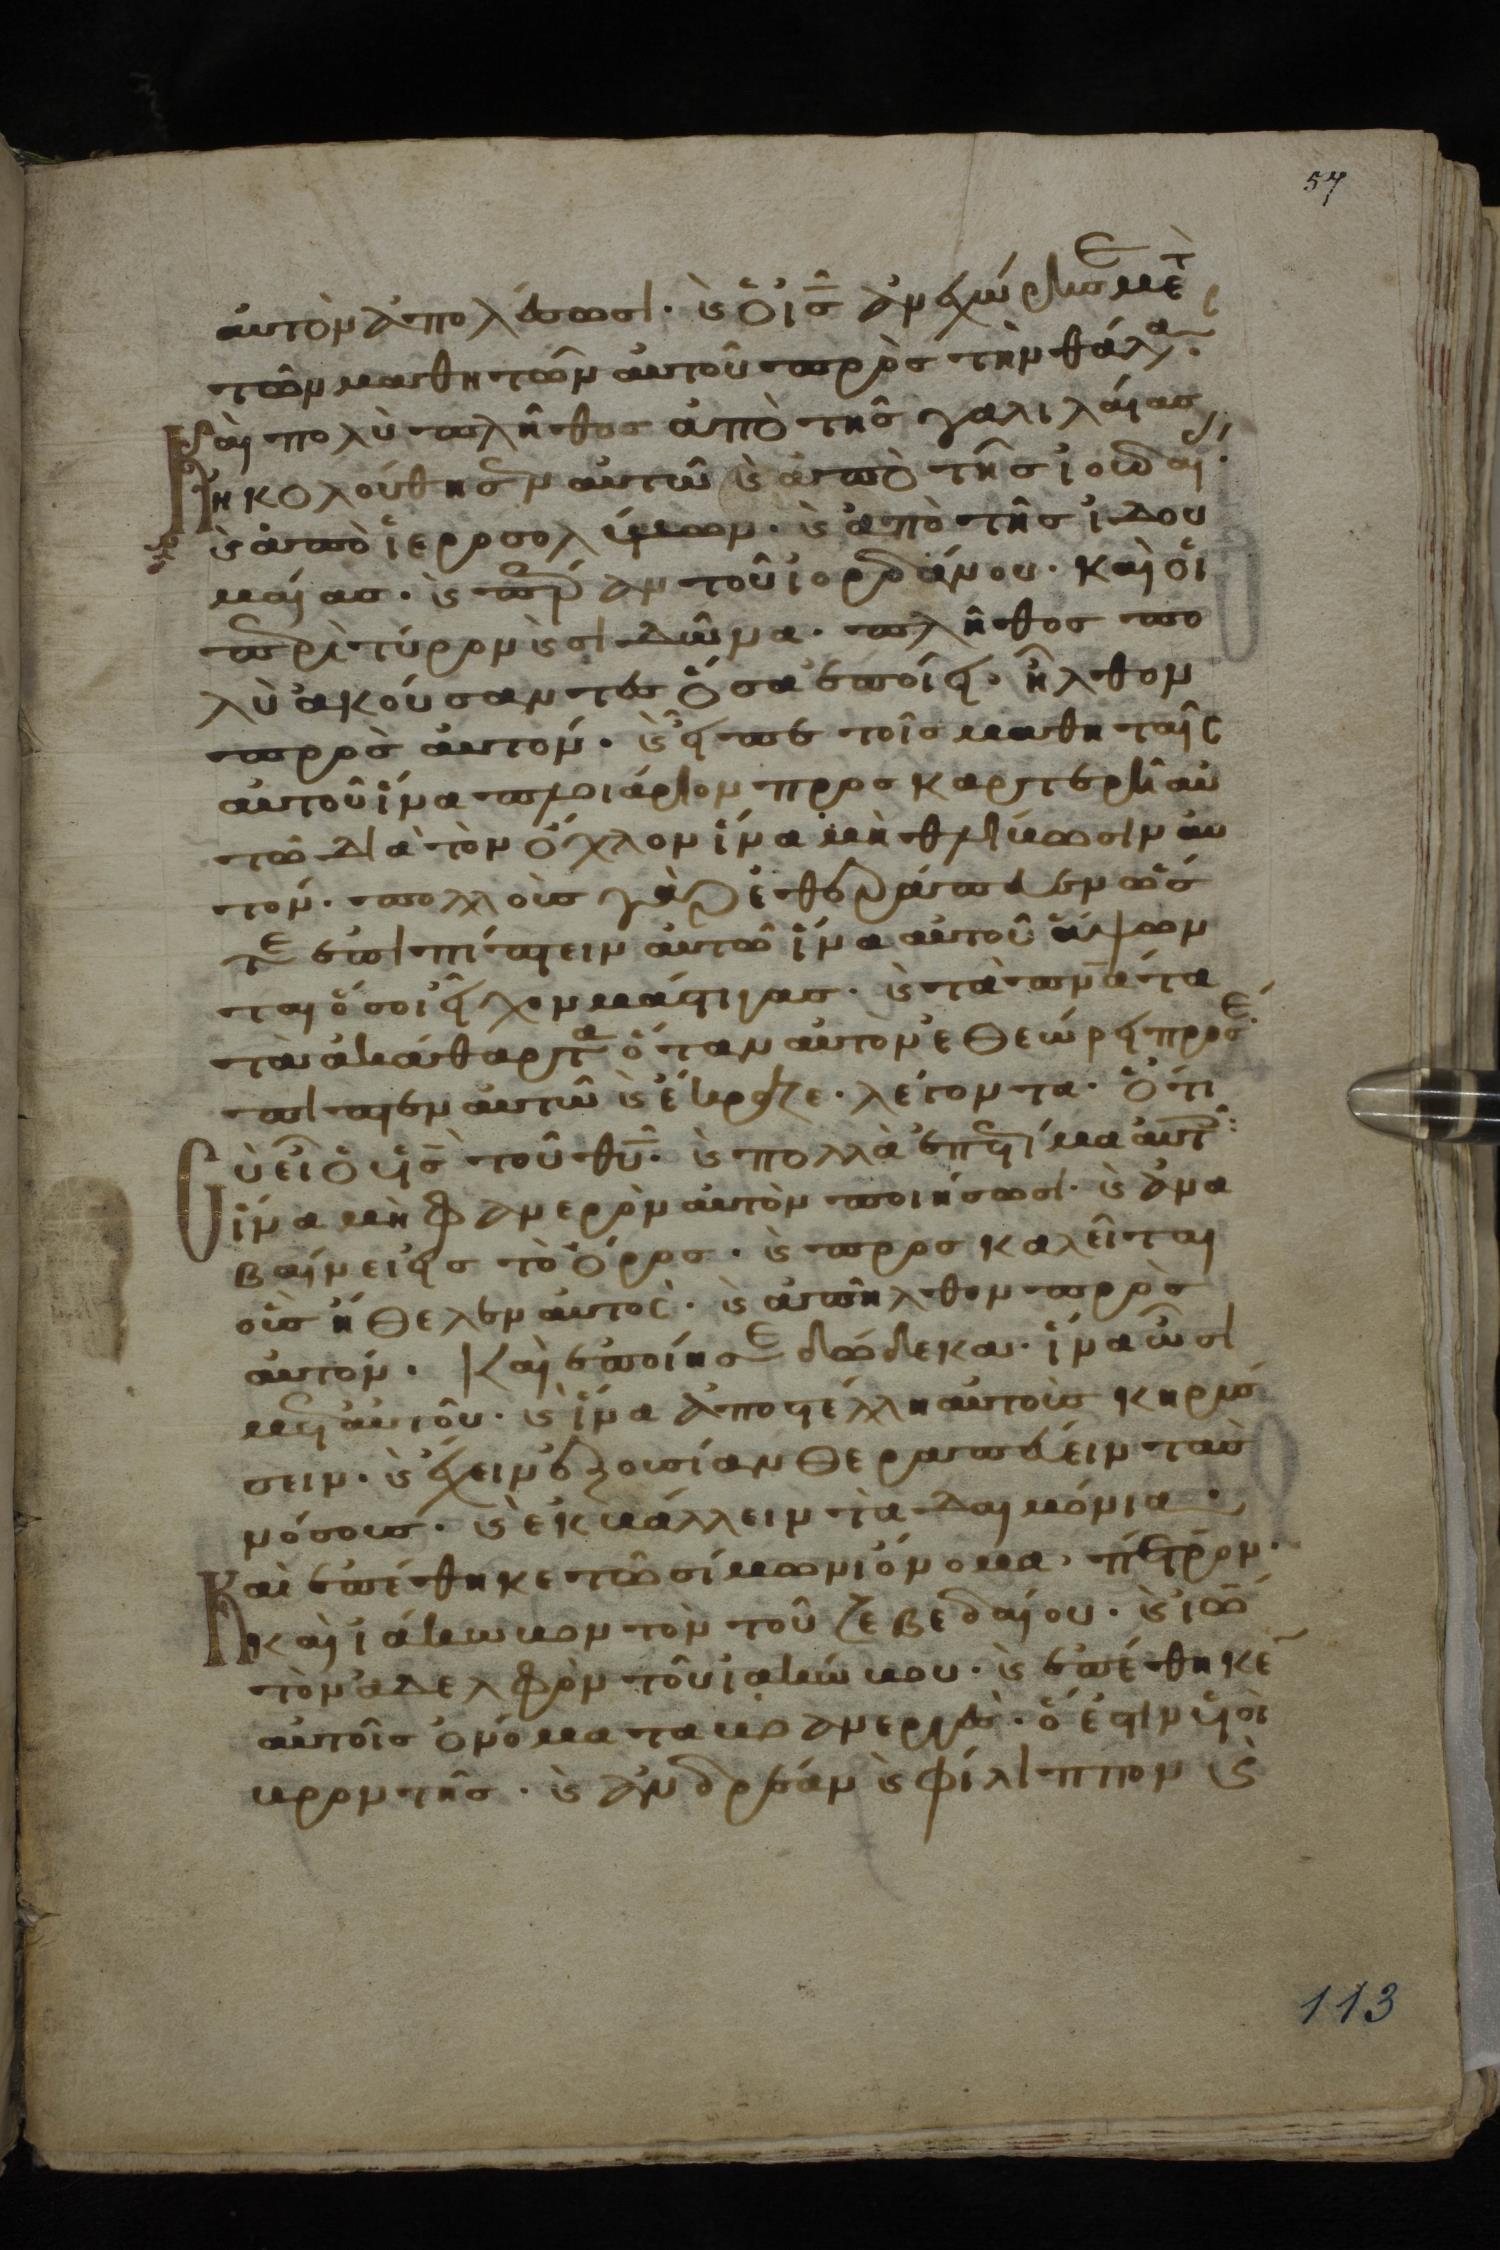 57
αὐτὸν ἀπολέσωσι· ϗ ὁ ις̅ ἀνεχώρησε μετ
τῶν μαθητῶν αὐτοῦ πρὸς τὴν θάλα·
Καὶ πολὺ πλῆθος ἀπὸ τῆς γαλιλαίας
ἠκολούθησαν αὐτῶ ϗ ἀπὸ τῆς ἰουδαί·
ϗ ἀπὸ ἱεροσολύμων· ϗ ἀπὸ τῆς ἰδου
μαίας· ϗ πέραν τοῦ ἰορδάνου· καὶ οἱ
περὶ τύρον ϗ σιδῶνα· πλῆθος πο
λὺ ἀκούσαντες ὅσα ἐποίει· ἦλθον
πρὸς αὐτόν· ϗ εἶπε τοῖς μαθηταῖς
αὐτοῦ ἵνα πλοιάριον προσκαρτερῆ αὐ
τῶ διὰ τὸν ὄχλον ἵνα μὴ θλίβωσιν αὐ
τόν· πολλοὺς γὰρ ἐθεράπευσεν ὥς
τε ἐπιπίπτειν αὐτῶ ἵνα αὐτοῦ ἅψων
ται ὅσοι εἶχον μάστιγας· ϗ τὰ πνα̅τα
τὰ ἀκάθαρτα ὅταν αὐτὸν ἐθεώρει προσέ
πιπτεν αὐτῶ ϗ ἔκραζε· λέγοντα· ὅτι
Σὺ εἶ ὁ υς̅ τοῦ θυ̅· ϗ πολλὰ ἐπετίμα αὐτοῖς:
ἵνα μὴ φανερὸν αὐτὸν ποιήσωσι· ϗ ἀνα
βαίνει εἰς τὸ ὄρος· ϗ προσκαλεῖται
οὓς ἤθελεν αὐτός· ϗ ἀπῆλθον πρὸς
αὐτόν· Καὶ ἐποίησε δώδεκα· ἵνα ὦσι
μετ αὐτοῦ· ϗ ἵνα ἀποστέλλη αὐτοὺς κηρύσ
σειν· ϗ ἔχειν ἐξουσίαν θεραπεύειν τὰς
νόσους· ϗ ἐκβάλλειν τὰ δαιμόνια·
Καὶ ἐπέθηκε τῶ σίμωνι ὄνομα· πέτρον·
καὶ ἰάκωβον τὸν τοῦ ζεβεδαίου· ϗ ἰω
τὸν ἀδελφὸν τοῦ ἰακώβου· ϗ ἐπέθηκε
αὐτοῖς ὀνόματα βοανεργὲς· ὅ ἐστιν υἱοὶ
βροντῆς· ϗ ἀνδρέαν ϗ φίλιππον ϗ
113